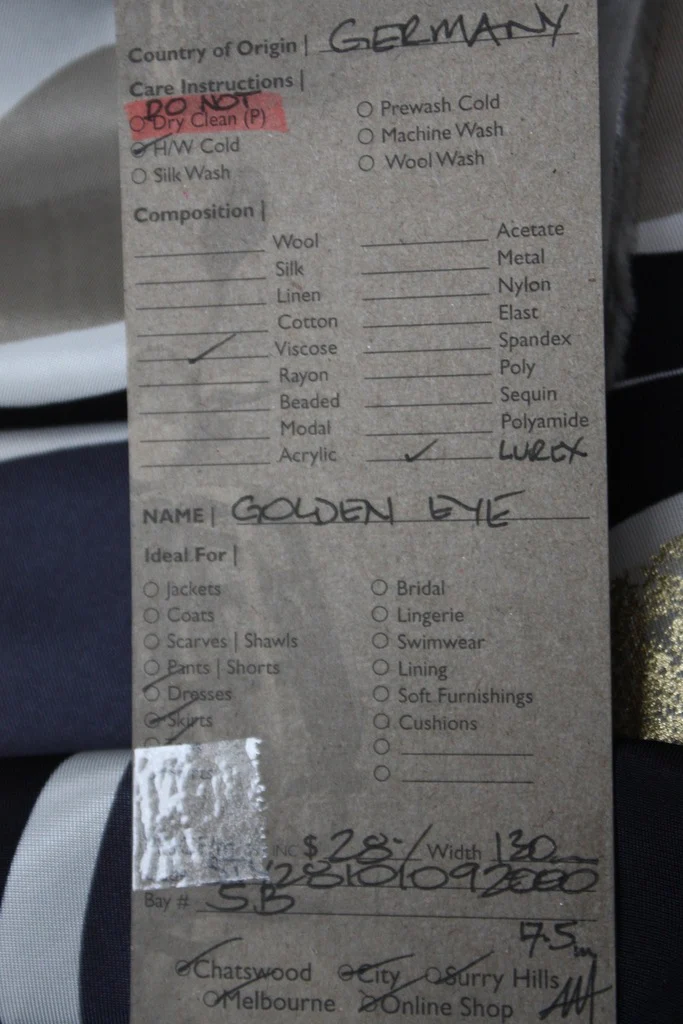 Country of Origin | GERMANY
Care Instructions |
DO NOT
Dry Clean (P)
Prewash Cold
H/W Cold
Machine Wash
Silk Wash
Wool Wash
Composition |
Wool
Acetate
Silk
Metal
Linen
Nylon
Cotton
Elast
Viscose
Spandex
Rayon
Poly
Beaded
Sequin
Modal
Polyamide
Acrylic
LUREX
NAME | GOLDEN EYE
Ideal For |
Jackets
Bridal
Coats
Lingerie
Scarves | Shawls
Swimwear
Pants | Shorts
Lining
Dresses
Soft Furnishings
Skirts
Cushions
$ 28-/ Width 130
Bay # S.B
7.5m
Chatswood City Surry Hills
Melbourne Online Shop